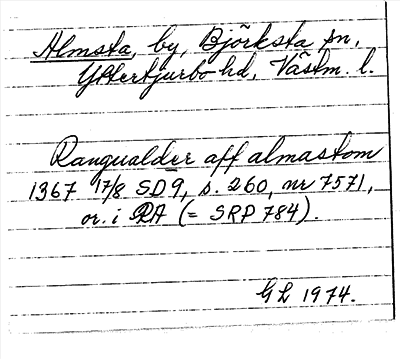 Almsta, by, Björksta sn,
Yttertjurbo hd, Västm. l.
Rangualder aff almastom
1367 17/8 SD 9, s. 260, nr 7571,
or. i RA (= SRP 784).
GL 1974.